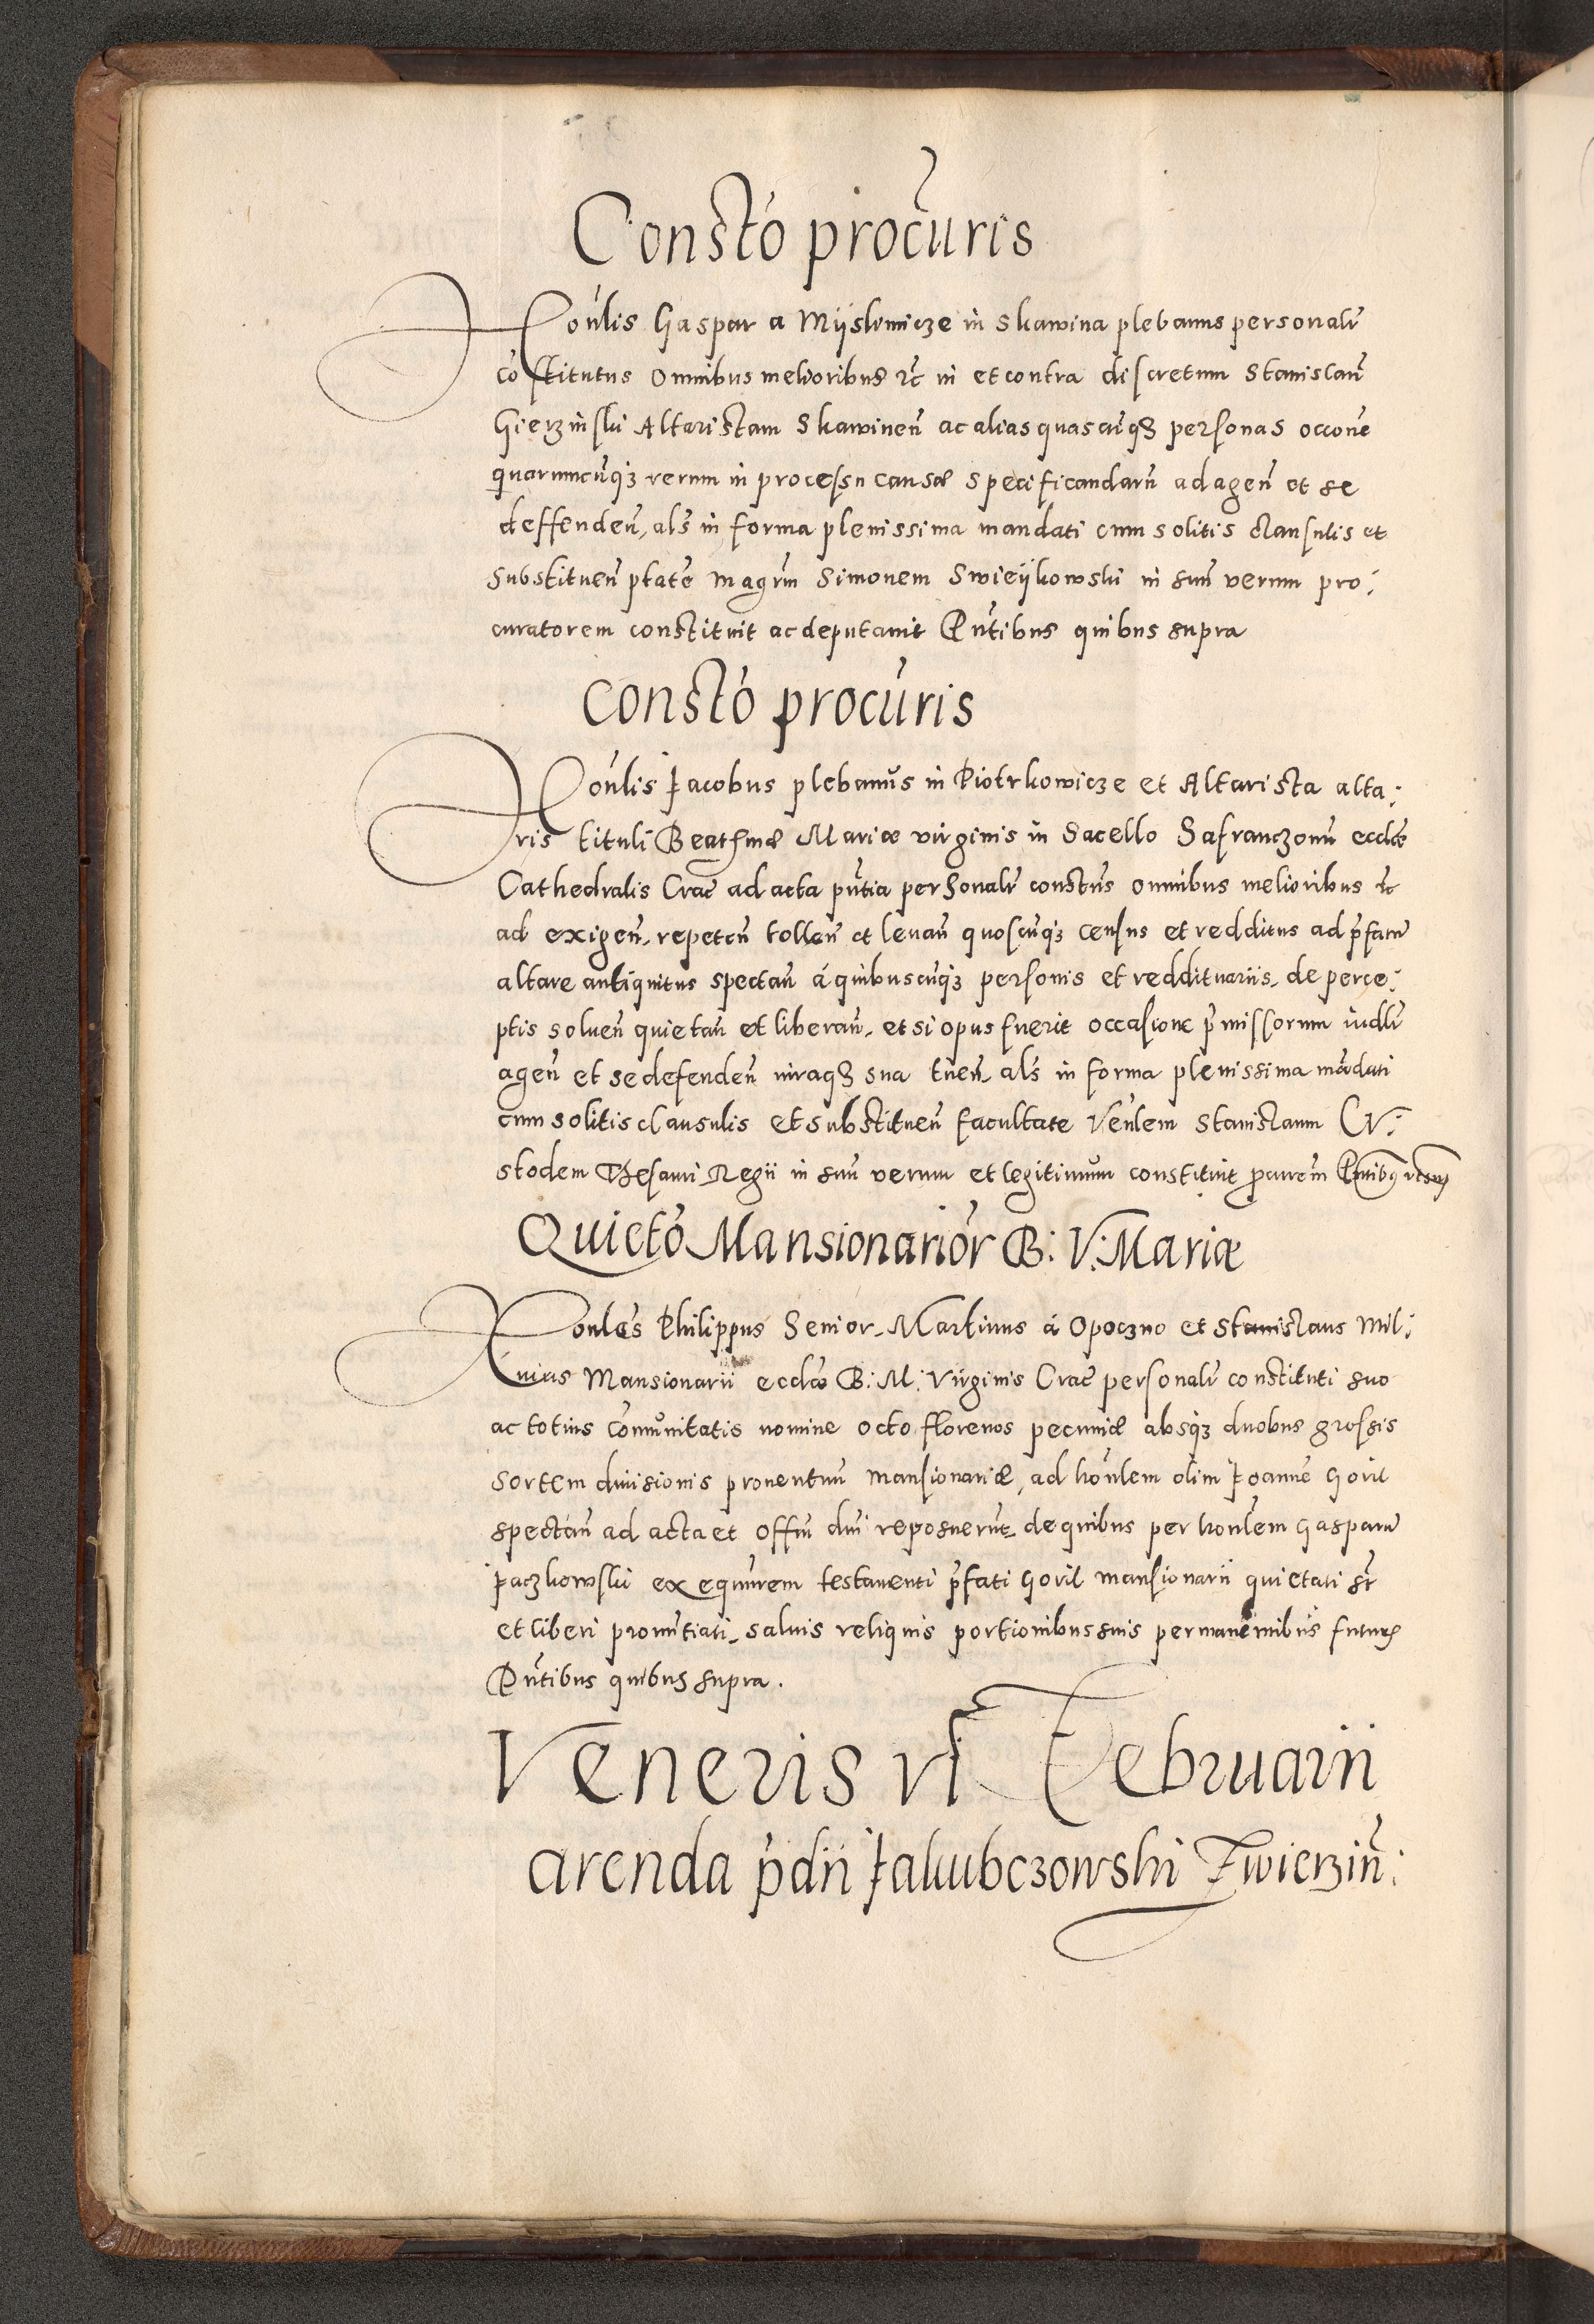 Constō procūris
Honlīs Gaspar a Mÿslimicze in Skawina plebanus personalr̄
cōstitutus omnibus melioribus etc̄ in et contra discretum Stanislaū
Gierzinski Altaristam Skawinen̄ ac alias quascūqʒ personas occone̅
quarumcūqʒ rerum in processu causæ specificandarū ad agen̄ et se
deffenden̄, als̄ in forma plenissima mandati cum solitis clausulis et
substituen̄ ptate̅ magr̄m Simonem Swieÿkowski in suū verum pro:
curatorem constituit ac deputauit Pn̄tibus quibus supra
Constō procūris
Honlīs Jacobus plebanus in Piotrkowicze et Altarista alta:
ris tituli Beatissimæ Mariæ virginis in Sacello Safranczonū eccłæ
Cathedralis Crac̄ ad acta pn̄tia personalr̄ constus̄ omnibus melioribus etc̄
ad exigen̄, repeten̄ tollen̄ et leuan̄ quoscūqʒ census et redditus ad p̄fatū
altare antiquitus spectan̄ á quibuscūqʒ personis et reddituariis, de perce:
ptis soluen̄ quietan̄ et liberan̄, et si opus fuerit occasione p̄missorum iudlr̄
agen̄ et se defenden̄ iuraqʒ sua tuen̄, als̄ in forma plenissima mādati
cum solitis clausulis et substituen̄ facultate Venlem̄ Stanislaum Cu:
stodem Thesauri Regii in suū verum et legitimum constituit procurem̄ Pn̄tibus
Quietō Mansionariōr B: V: Mariæ
Honles̄ Philippus Senior, Martinus á Opoczno et Stanislaus Mil:
uius Mansionarii eccłæ B: M: Virginis Crac̄ personalr̄ constituti suo
ac totius cōmunitatis nomine octo florenos pecuniæ absqʒ duobus grossis
sortem diuisionis prouentuū mansionariæ, ad honlem̄ olim Joannē Goril
spectan̄ ad acta et offm̄ dn̄i reposuerūt, de quibus per honlem̄ Gasparū
Jaczkowski exequūrem testamenti p̄fati Goril mansionarii quietati st̄
et liberi pronūtiati, saluis reliquis portionibus suis permanentibus futuris
Pn̄tibus quibus supra.
Veneris vi Februarii
arenda p̄dii Jakubczowski Zwierzin̄: